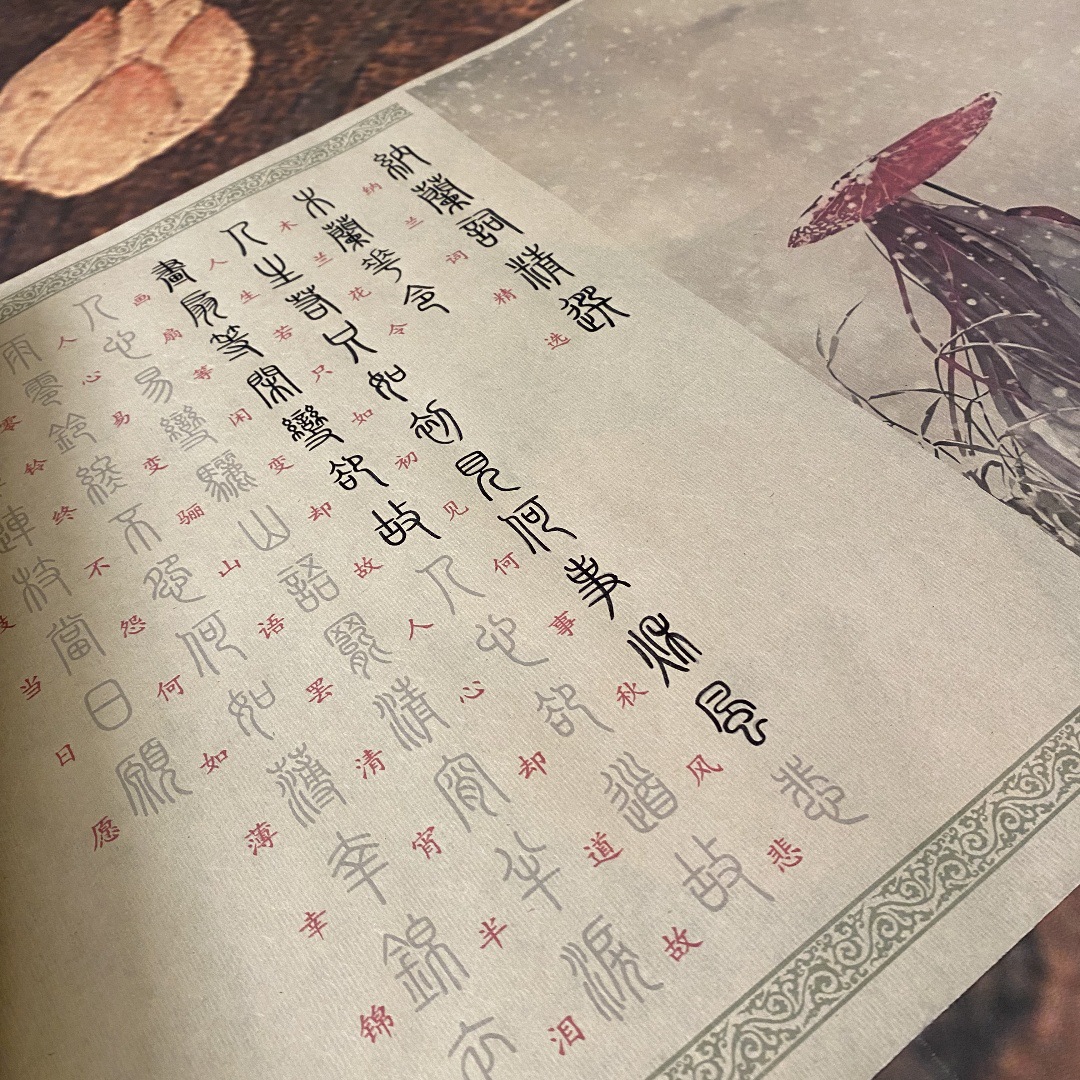 納蘭詞精選
纳兰词精选
木蘭花令
木兰花令
人生若只如初見何事秋風悲
人生若只如初见何事秋风悲
畫扇等閑變卻故人心卻道故
画扇等闲变却故人心却道故
人心易變驪山語罷清宵半淚
人心易变骊山语罢清宵半泪
雨零鈴終不怨何如薄幸錦衣
零铃终不怨何如薄幸锦
連枝當日願
枝当日愿